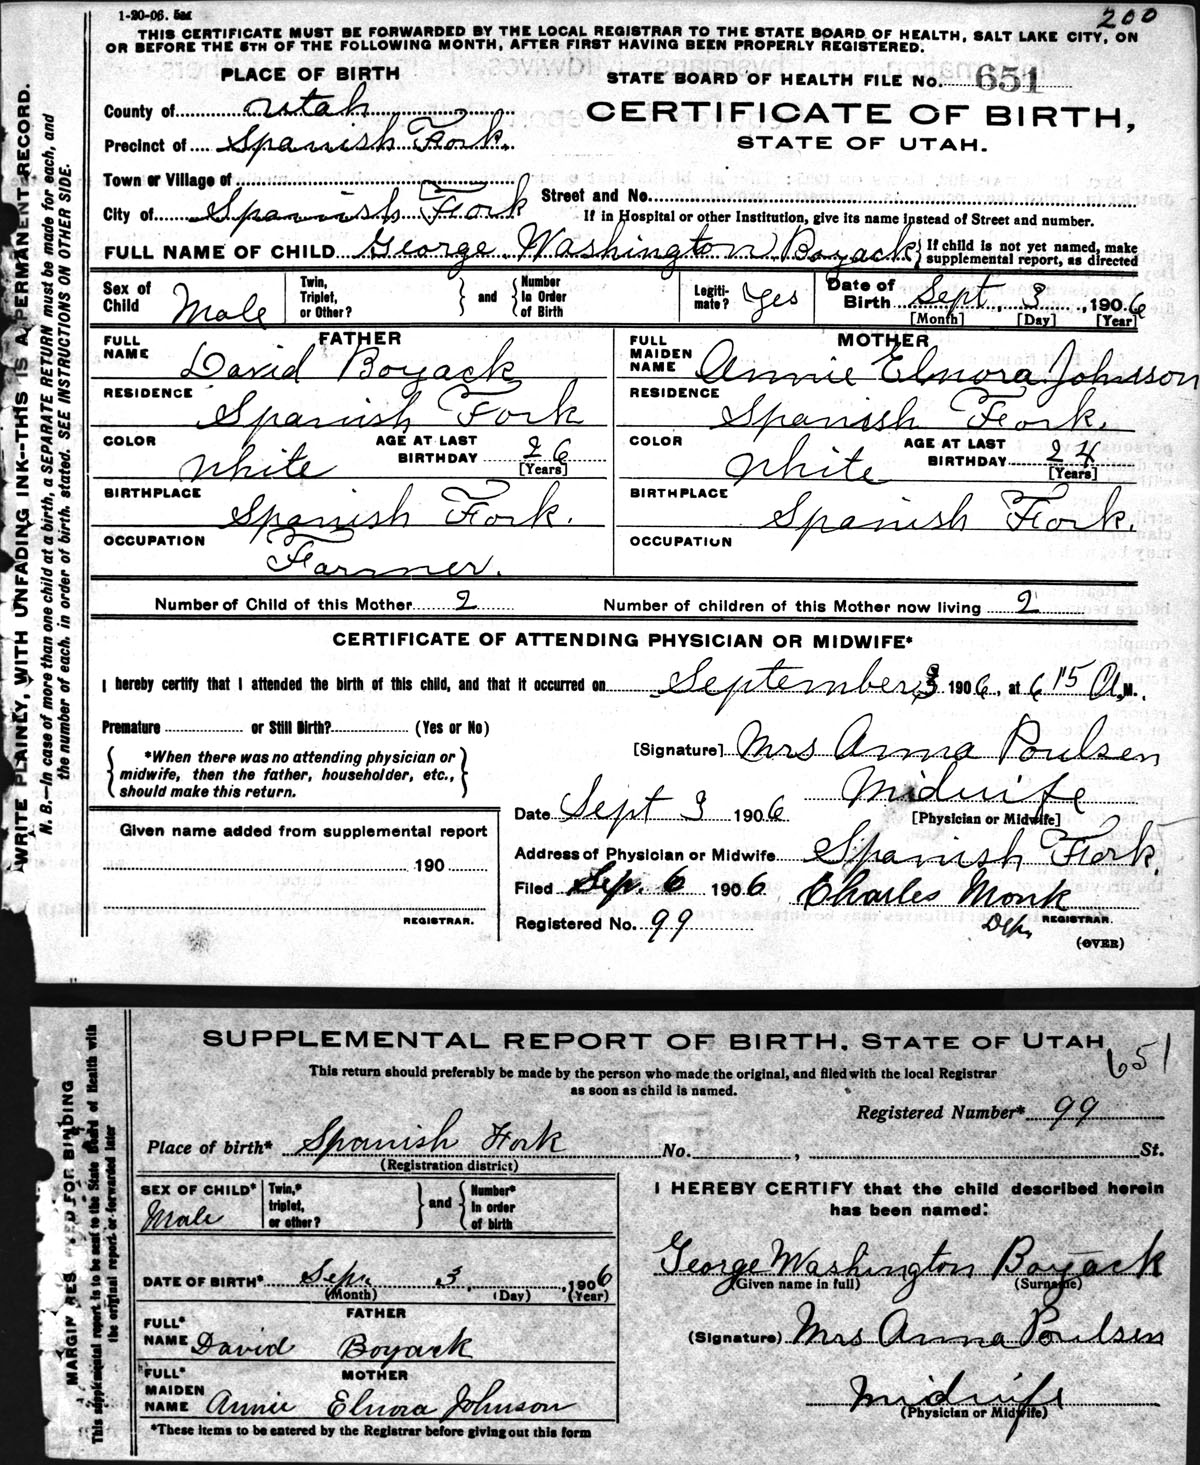 1-20-06. 5m
200
THIS CERTIFICATE MUST BE FORWARDED BY THE LOCAL REGISTRAR TO THE STATE BOARD OF HEALTH, SALT LAKE CITY, ON
OR BEFORE THE 5TH OF THE FOLLOWING MONTH, AFTER FIRST HAVING BEEN PROPERLY REGISTERED.
PLACE OF BIRTH
STATE BOARD OF HEALTH FILE No. 651
County of Utah
CERTIFICATE OF BIRTH,
Precinct of Spanish Fork.
STATE OF UTAH.
Town or Village of
Street and No.
City of Spanish Fork
If in Hospital or other Institution, give its name instead of Street and number.
FULL NAME OF CHILD George Washington Boyack
If child is not yet named, make
supplemental report, as directed
Sex of Child Male
Twin, Triplet, or Other?
and
Number In Order of Birth
Legiti-mate? Yes
Date of Birth Sept 3, 1906
[Month] [Day] [Year]
FATHER
FULL NAME David Boyack
RESIDENCE
Spanish Fork
COLOR White
AGE AT LAST BIRTHDAY 26
[Years]
BIRTHPLACE
Spanish Fork.
OCCUPATION
Farmer.
MOTHER
FULL MAIDEN NAME Annie Elnora Johnson
RESIDENCE
Spanish Fork.
COLOR White
AGE AT LAST BIRTHDAY 24
[Years]
BIRTHPLACE
Spanish Fork.
OCCUPATION
Number of Child of this Mother 2
Number of children of this Mother now living 2
CERTIFICATE OF ATTENDING PHYSICIAN OR MIDWIFE*
I hereby certify that I attended the birth of this child, and that it occurred on September 3 1906, at 6 15 A.M.
Premature or Still Birth? (Yes or No)
[Signature] Mrs Anna Poulsen
*When there was no attending physician or
midwife, then the father, householder, etc.,
should make this return.
Midwife
[Physician or Midwife]
Date Sept 3 1906
Given name added from supplemental report
190
REGISTRAR.
Address of Physician or Midwife Spanish Fork.
Filed Sep. 6 1906 Charles Monk
Dep. REGISTRAR.
Registered No. 99
(OVER)
WRITE PLAINLY, WITH UNFADING INK--THIS IS A PERMANENT RECORD.
N. B.—In case of more than one child at a birth, a SEPARATE RETURN must be made for each, and
the number of each, in order of birth, stated. SEE INSTRUCTIONS ON OTHER SIDE.
SUPPLEMENTAL REPORT OF BIRTH, STATE OF UTAH
651
This return should preferably be made by the person who made the original, and filed with the local Registrar
as soon as child is named.
Registered Number* 99
Place of birth* Spanish Fork No. , St.
(Registration district)
SEX OF CHILD*
Male
Twin,* triplet, or other?
and
Number* In order of birth
DATE OF BIRTH* Sep. 3, 1906
(Month) (Day) (Year)
FATHER
FULL* NAME David Boyack
MOTHER
FULL* MAIDEN NAME Annie Elnora Johnson
*These items to be entered by the Registrar before giving out this form
I HEREBY CERTIFY that the child described herein
has been named:
George Washington Boyack
(Given name in full) (Surname)
(Signature) Mrs Anna Poulsen
Midwife
(Physician or Midwife)
This supplemental report is to be sent to the State Board of Health with
the original report or forwarded later